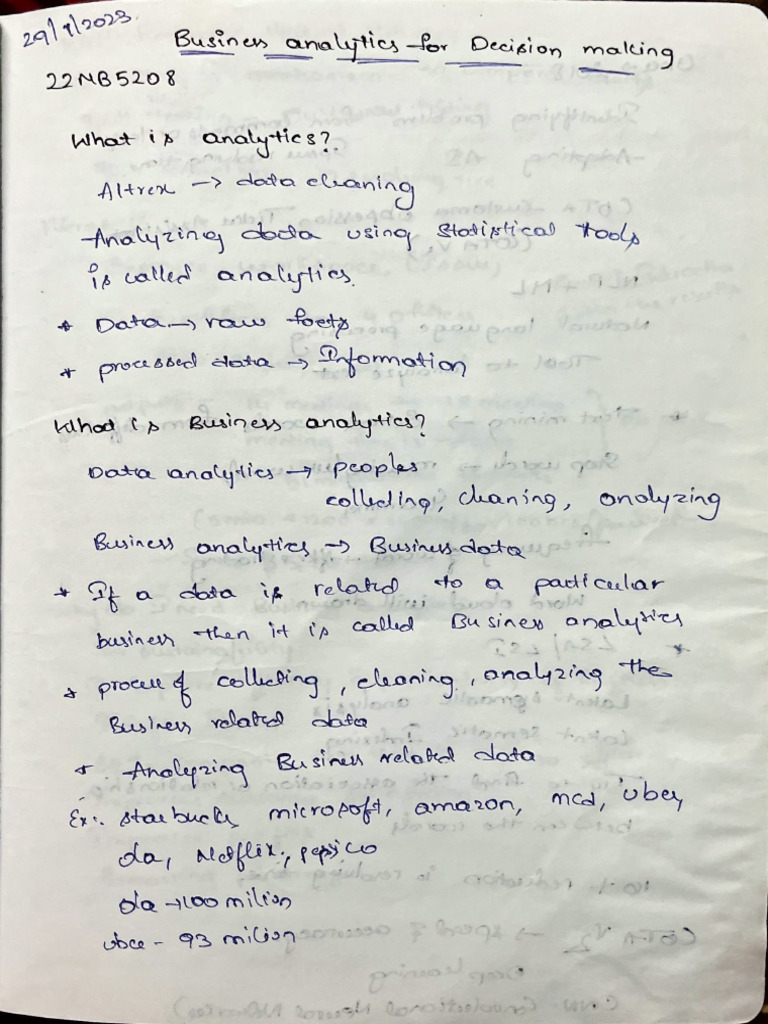 29/9/2023
Business analytics for Decision making
22NB5208
What is analytics?
Altrex → data cleaning
Analyzing data using Statistical tools
is called analytics.
* Data → raw facts
* processed data → Information
What is Business analytics?
Data analytics → peoples
collecting, cleaning, analyzing
Business analytics → Business data
* If a data is related to a particular
business then it is called Business analytics
* process of collecting, cleaning, analyzing the
Business related data
* Analyzing Business related data
Ex:. starbucks, microsoft, amazon, mcd, uber,
ola, Netflix, pepsico
ola → 100 milion
uber - 93 milion